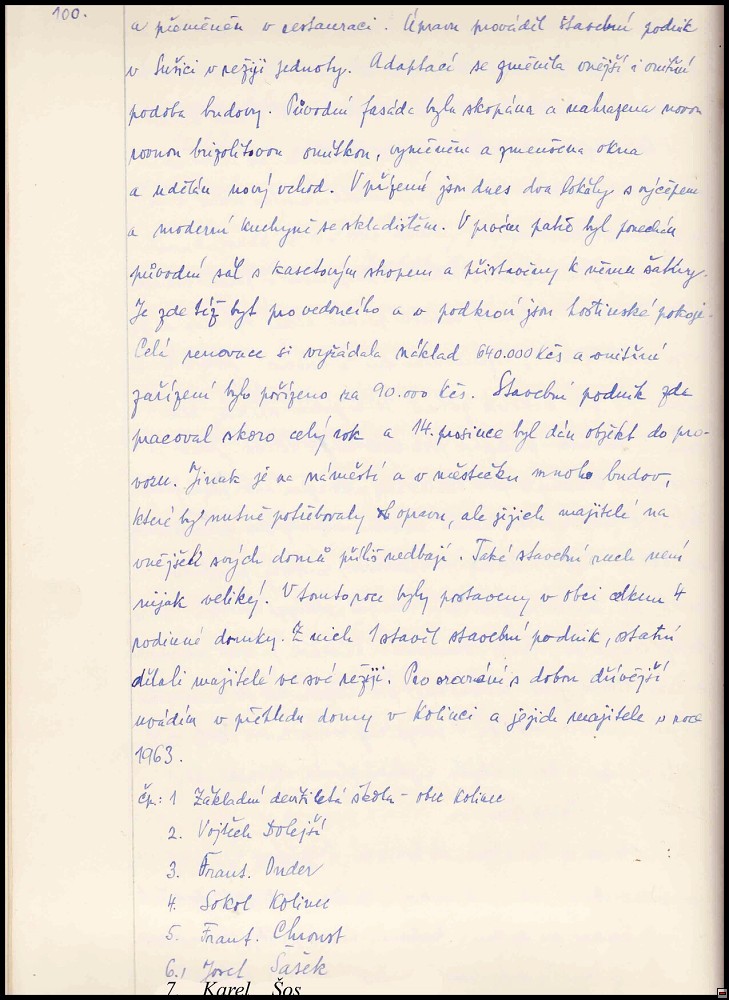 100.
a přeměněn v restauraci. Úpravu prováděl stavební podnik
v Sušici v režiji jednoty. Adaptací se změnila vnější i vnitřní
podoba budovy. Původní fasáda byla skopána a nahrazena novou
rovnou brizolitovou omítkou, vyměněna a zmenšena okna
a udělán nový vchod. V přízemí jsou dnes dva lokály s výčepem
a moderní kuchyně se skladištěm. V prvém patře byl ponechán
původní sál s kasetovým stropem a přistavěny k němu šatny.
Je zde též byt pro vedoucího a v podkroví jsou hostinské pokoje.
Celá renovace si vyžádala náklad 640.000 Kčs a vnitřní
zařízení bylo pořízeno za 90.000 Kčs. Stavební podnik zde
pracoval skoro celý rok a 14. prosince byl dán objekt do pro-
vozu. Jinak je na náměstí a v městečku mnoho budov,
které by nutně potřebovaly opravu, ale jejich majitelé na
vnějšek svých domů příliš nedbají. Také stavební ruch není
nijak veliký. V tomto roce byly postaveny v obci celkem 4
rodinné domky. Z nich 1 stavěl stavební podnik, ostatní
dělali majitelé ve své režiji. Pro srovnání s dobou dřívější
uvádím v přehledu domy v Kolinci a jejich majitele v roce
1963.
čp.: 1 Základní devítiletá škola - obec Kolinec
2. Vojtěch Dolejší
3. Frant. Onder
4. Sokol Kolinec
5. Frant. Chroust
6. Josef Šašek
7. Karel Šos